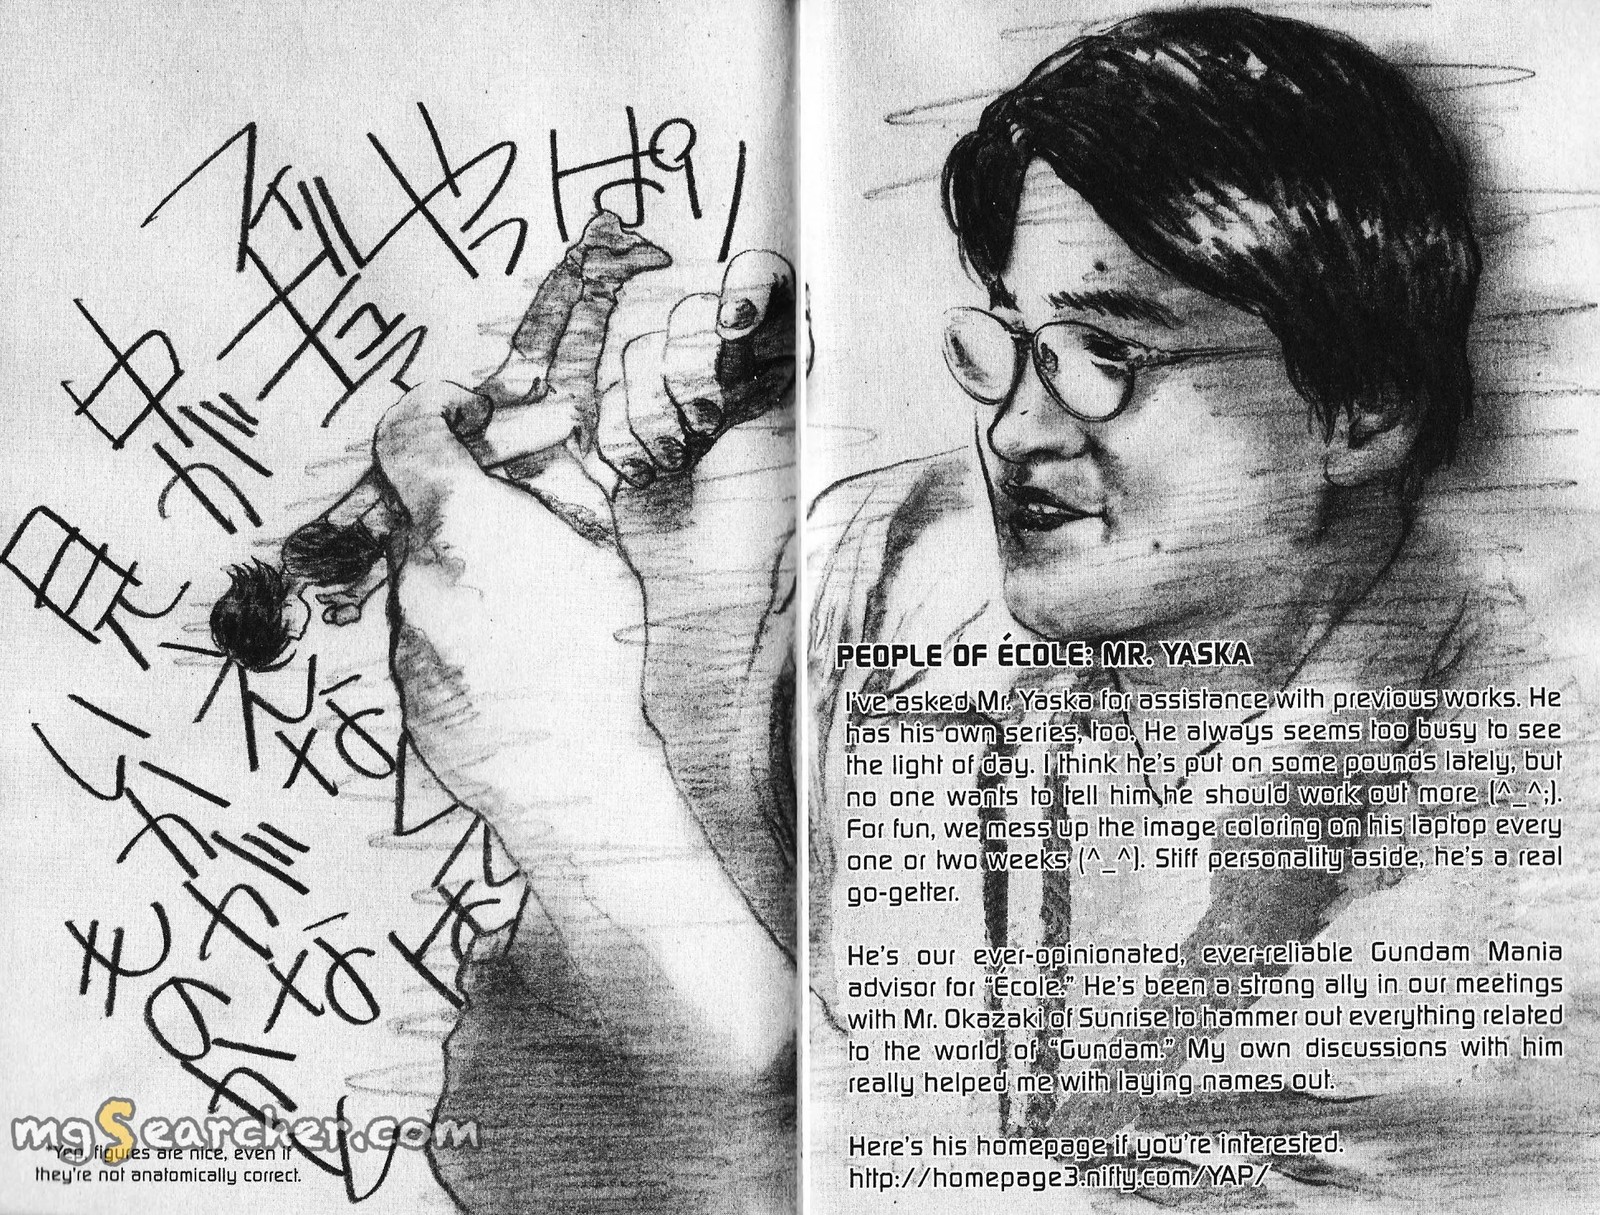 やっぱり
中が
見えな
PEOPLE OF ÉCOLE: MR. YASKA
I've asked Mr. Yaska for assistance with previous works. He
has his own series, too. He always seems too busy to see
the light of day. I think he's put on some pounds lately, but
no one wants to tell him he should work out more (^_^;).
For fun, we mess up the image coloring on his laptop every
one or two weeks (^_^). Stiff personality aside, he's a real
go-getter.
He's our ever-opinionated, ever-reliable Gundam Mania
advisor for “École.” He's been a strong ally in our meetings
with Mr. Okazaki of Sunrise to hammer out everything related
to the world of “Gundam.” My own discussions with him
really helped me with laying names out.
Here's his homepage if you're interested.
http://homepage3.nifty.com/YAP/
mgSearcher.com
*Yep, figures are nice, even if
they're not anatomically correct.